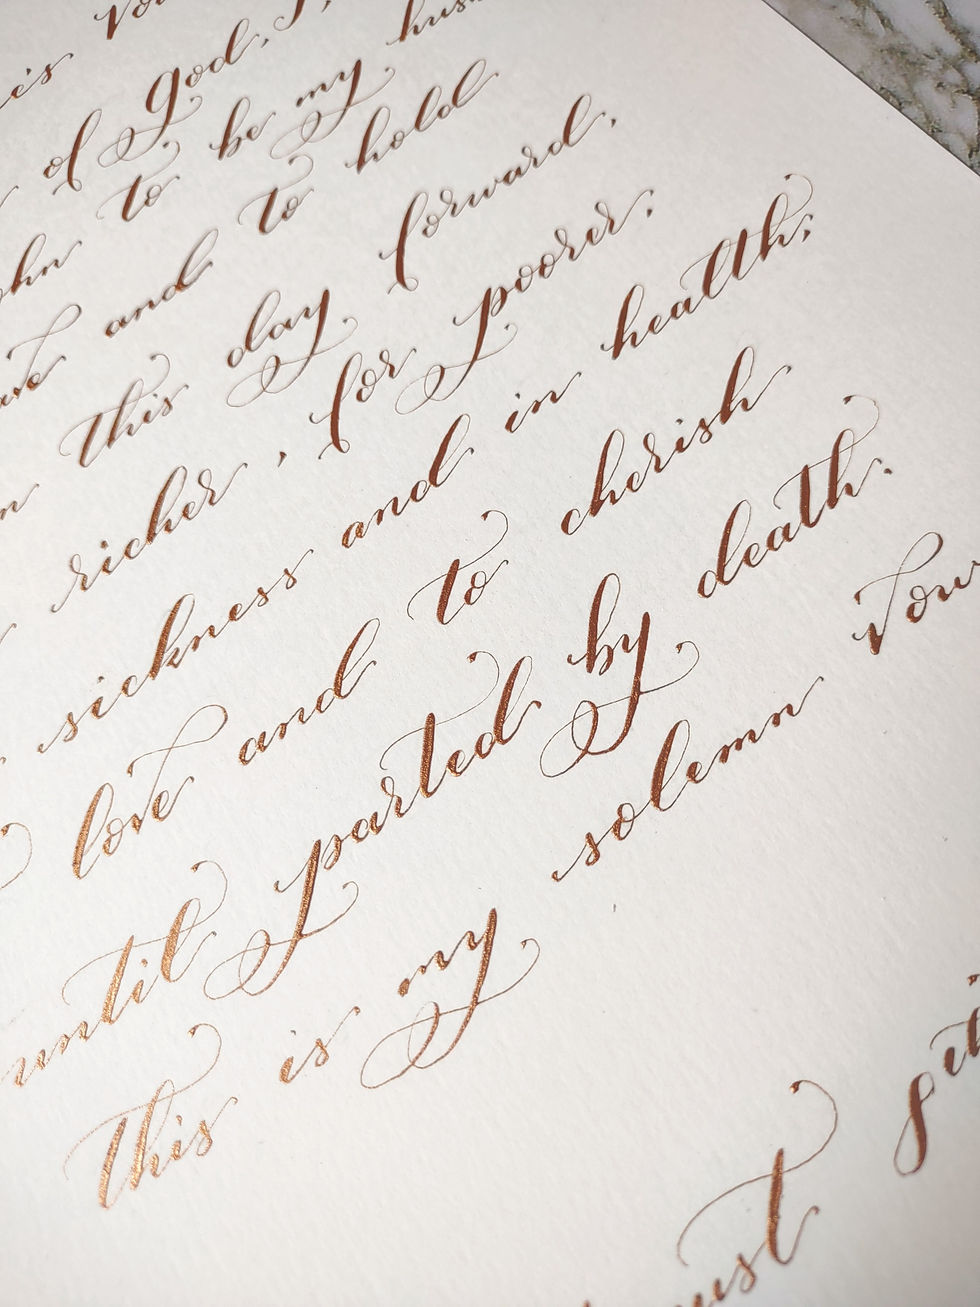 is
of God, I,
to be my
and to hold
this day forward,
richer, for poorer;
sickness and in health;
love and to cherish
until parted by death.
This is my solemn